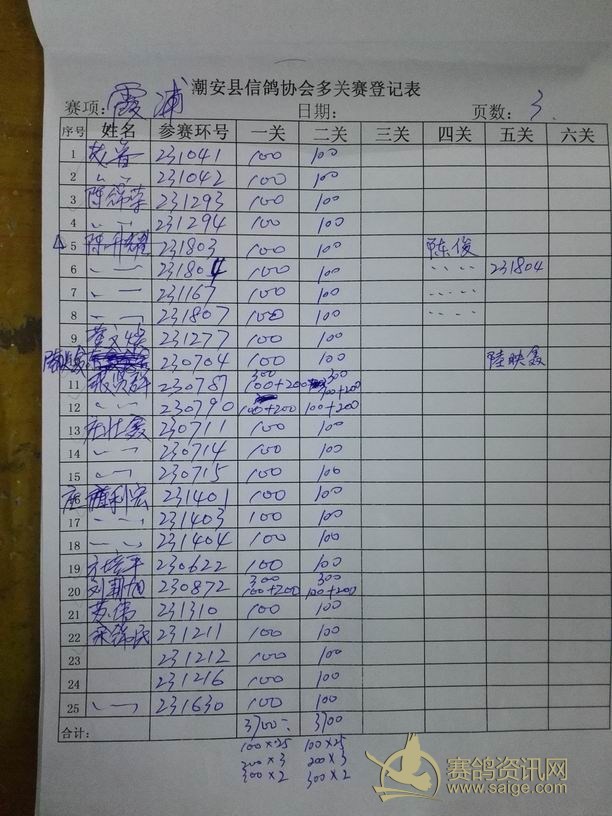 潮安县信鸽协会多关赛登记表
赛项: 霞浦 日期: 页数: 3.
序号 姓名 参赛环号 一关 二关 三关 四关 五关 六关
1 231041 100 100
2 〃 231042 100 100
3 231293 100 100
4 〃 231294 100 100
△5 231803 100 100 陈俊
6 〃 231804 100 100 〃 231804
7 〃 231167 100 100 〃
8 〃 231807 100 100 〃
9 231277 100 100
230704 100 100 陆映鑫
300 300
11 230787 100+200 100+200
12 〃 230790 100+200 100+200
13 230711 100 100
14 〃 230714 100 100
15 〃 230715 100 100
利宏 231401 100 100
17 〃 231403 100 100
18 〃 231404 100 100
19 230622 100 100
300 300
20 230872 100+200 100+200
21 苏伟 231310 100 100
22 231211 100 100
23 231212 100 100
24 231216 100 100
25 〃 231630 100 100
合计: 3700- 3700
100×25 100×25
200×3 200×3
300×2 300×2
赛鸽资讯网
www.saige.com